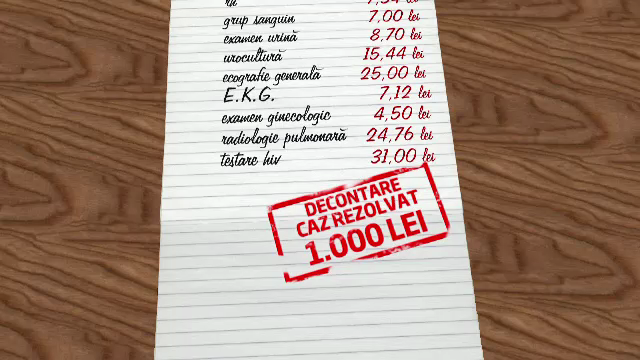 grup sanguin 7,00 lei
examen urină 8,70 lei
urocultură 15,44 lei
ecografie generală 25,00 lei
E.K.G. 7,12 lei
examen ginecologic 4,50 lei
radiologie pulmonară 24,76 lei
testare hiv 31,00 lei
DECONTARE
CAZ REZOLVAT
1.000 LEI